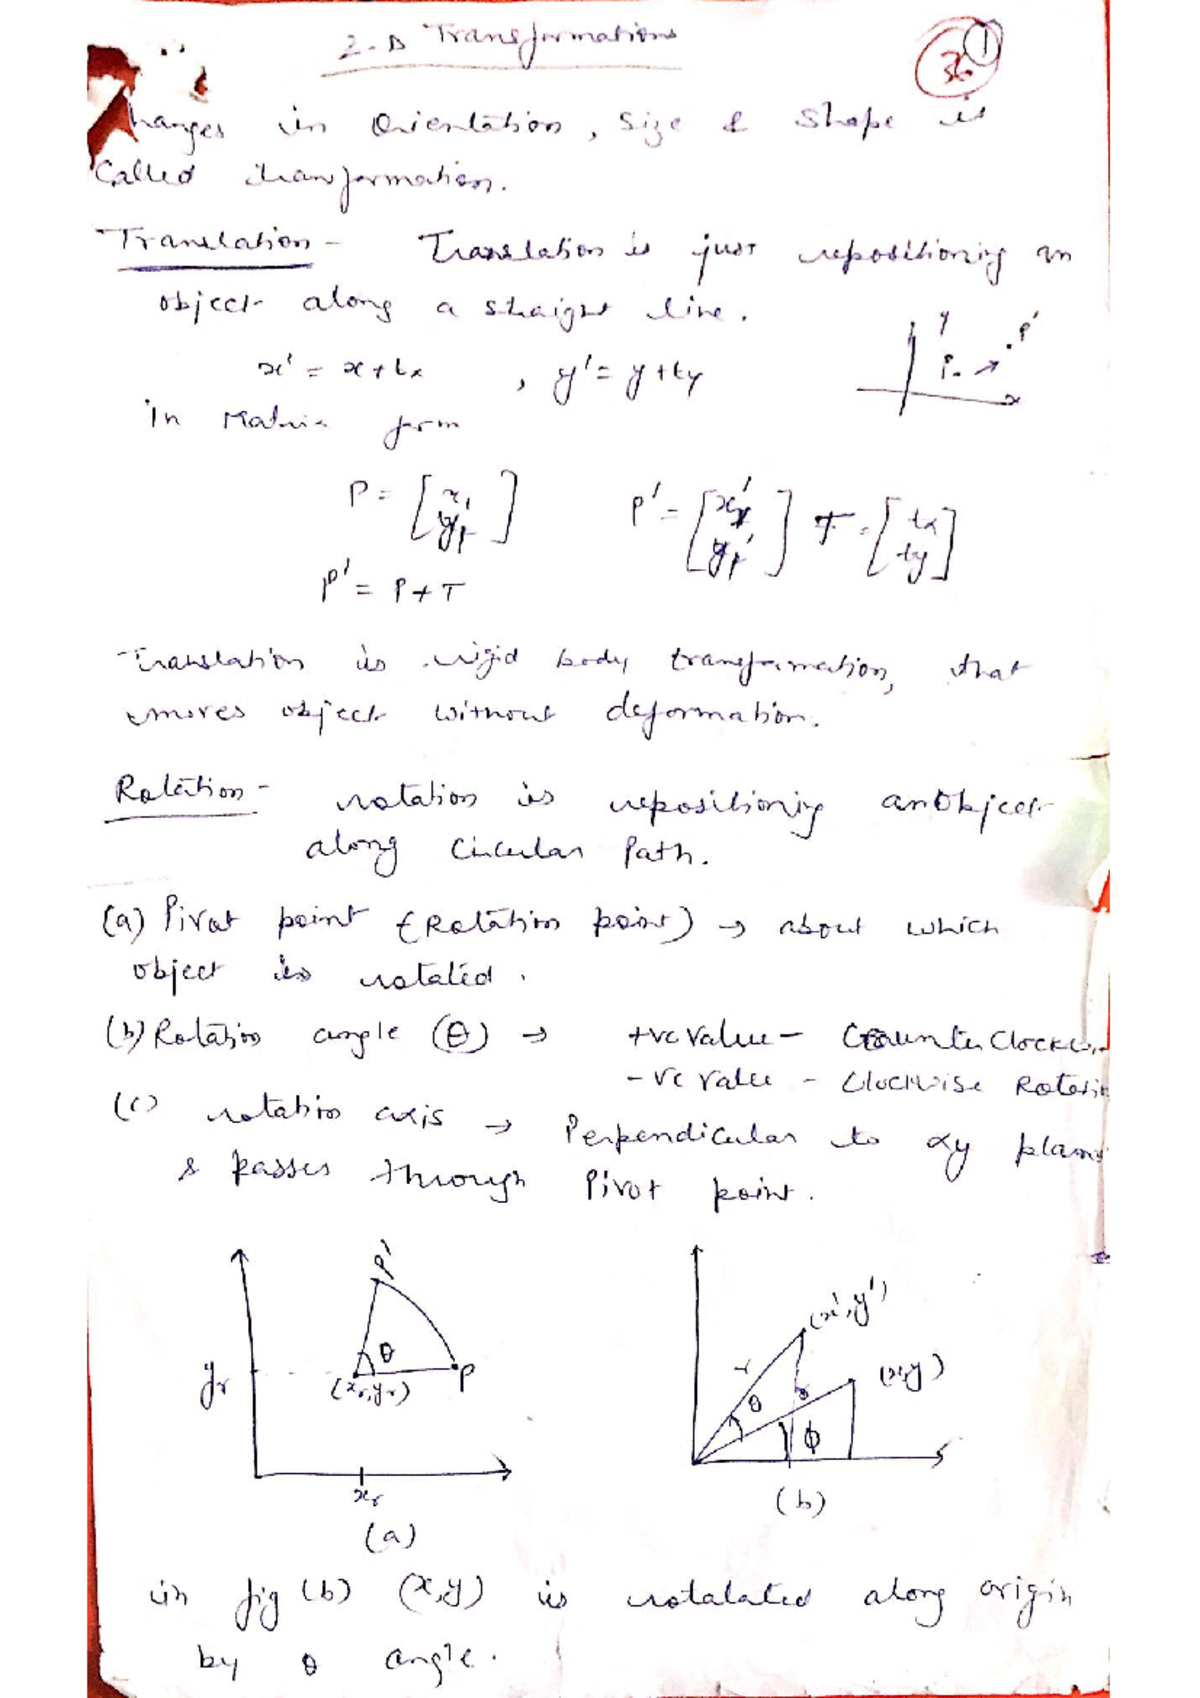 2-D Transformations
36 1
hanges in Orientation, Size & Shape is
Called transformation.
Translation - Translation is just repositioning an
object along a straight line.
x' = x + tx , y' = y + ty
y P' P x
in Matrix form
P = [x1 y1] P' = [x' y'] T = [tx ty]
P' = P + T
Translation is rigid body transformation, that
moves object without deformation.
Rotation - rotation is repositioning an Object
along Circular Path.
(a) Pivot point (Rotation point) → about which
object is rotated.
(b) Rotation angle (θ) → +ve value - Counter Clockwi
-ve value - Clockwise Rotatio
(c) rotation axis → Perpendicular to xy plane
& passes through Pivot point.
P' θ P (xr, yr) yr xr
(a)
(x', y') (x, y) r r θ ϕ
(b)
in fig (b) (x, y) is rotalated along origin
by θ angle.